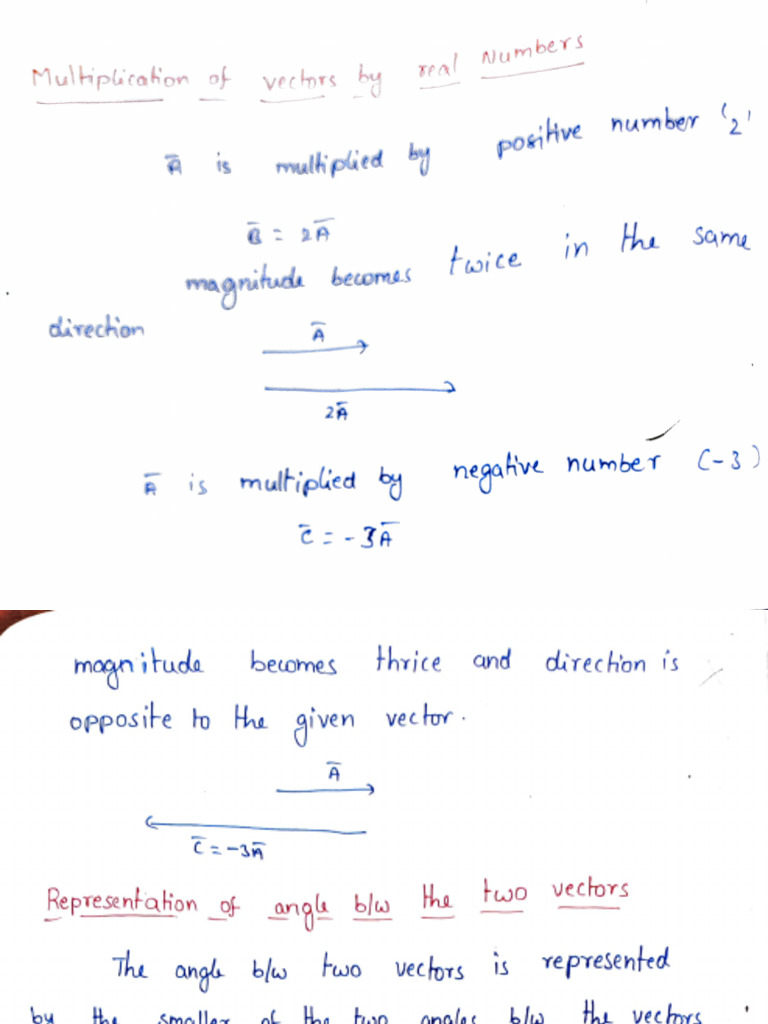 Multiplication of vectors by real Numbers
A̅ is multiplied by positive number '2'
B̅ = 2A̅
magnitude becomes twice in the same
direction
A̅
2A̅
A̅ is multiplied by negative number (-3)
C̅ = -3A̅
magnitude becomes thrice and direction is
opposite to the given vector.
A̅
C̅ = -3A̅
Representation of angle b/w the two vectors
The angle b/w two vectors is represented
by the smaller of the two angles b/w the vectors